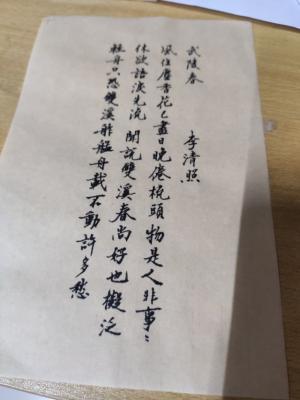 武陵春 李清照
風住塵香花已盡日晚倦梳頭物是人非事〻
休欲語淚先流 聞說雙溪春尚好也擬泛
輕舟只恐雙溪舴艋舟載不動許多愁